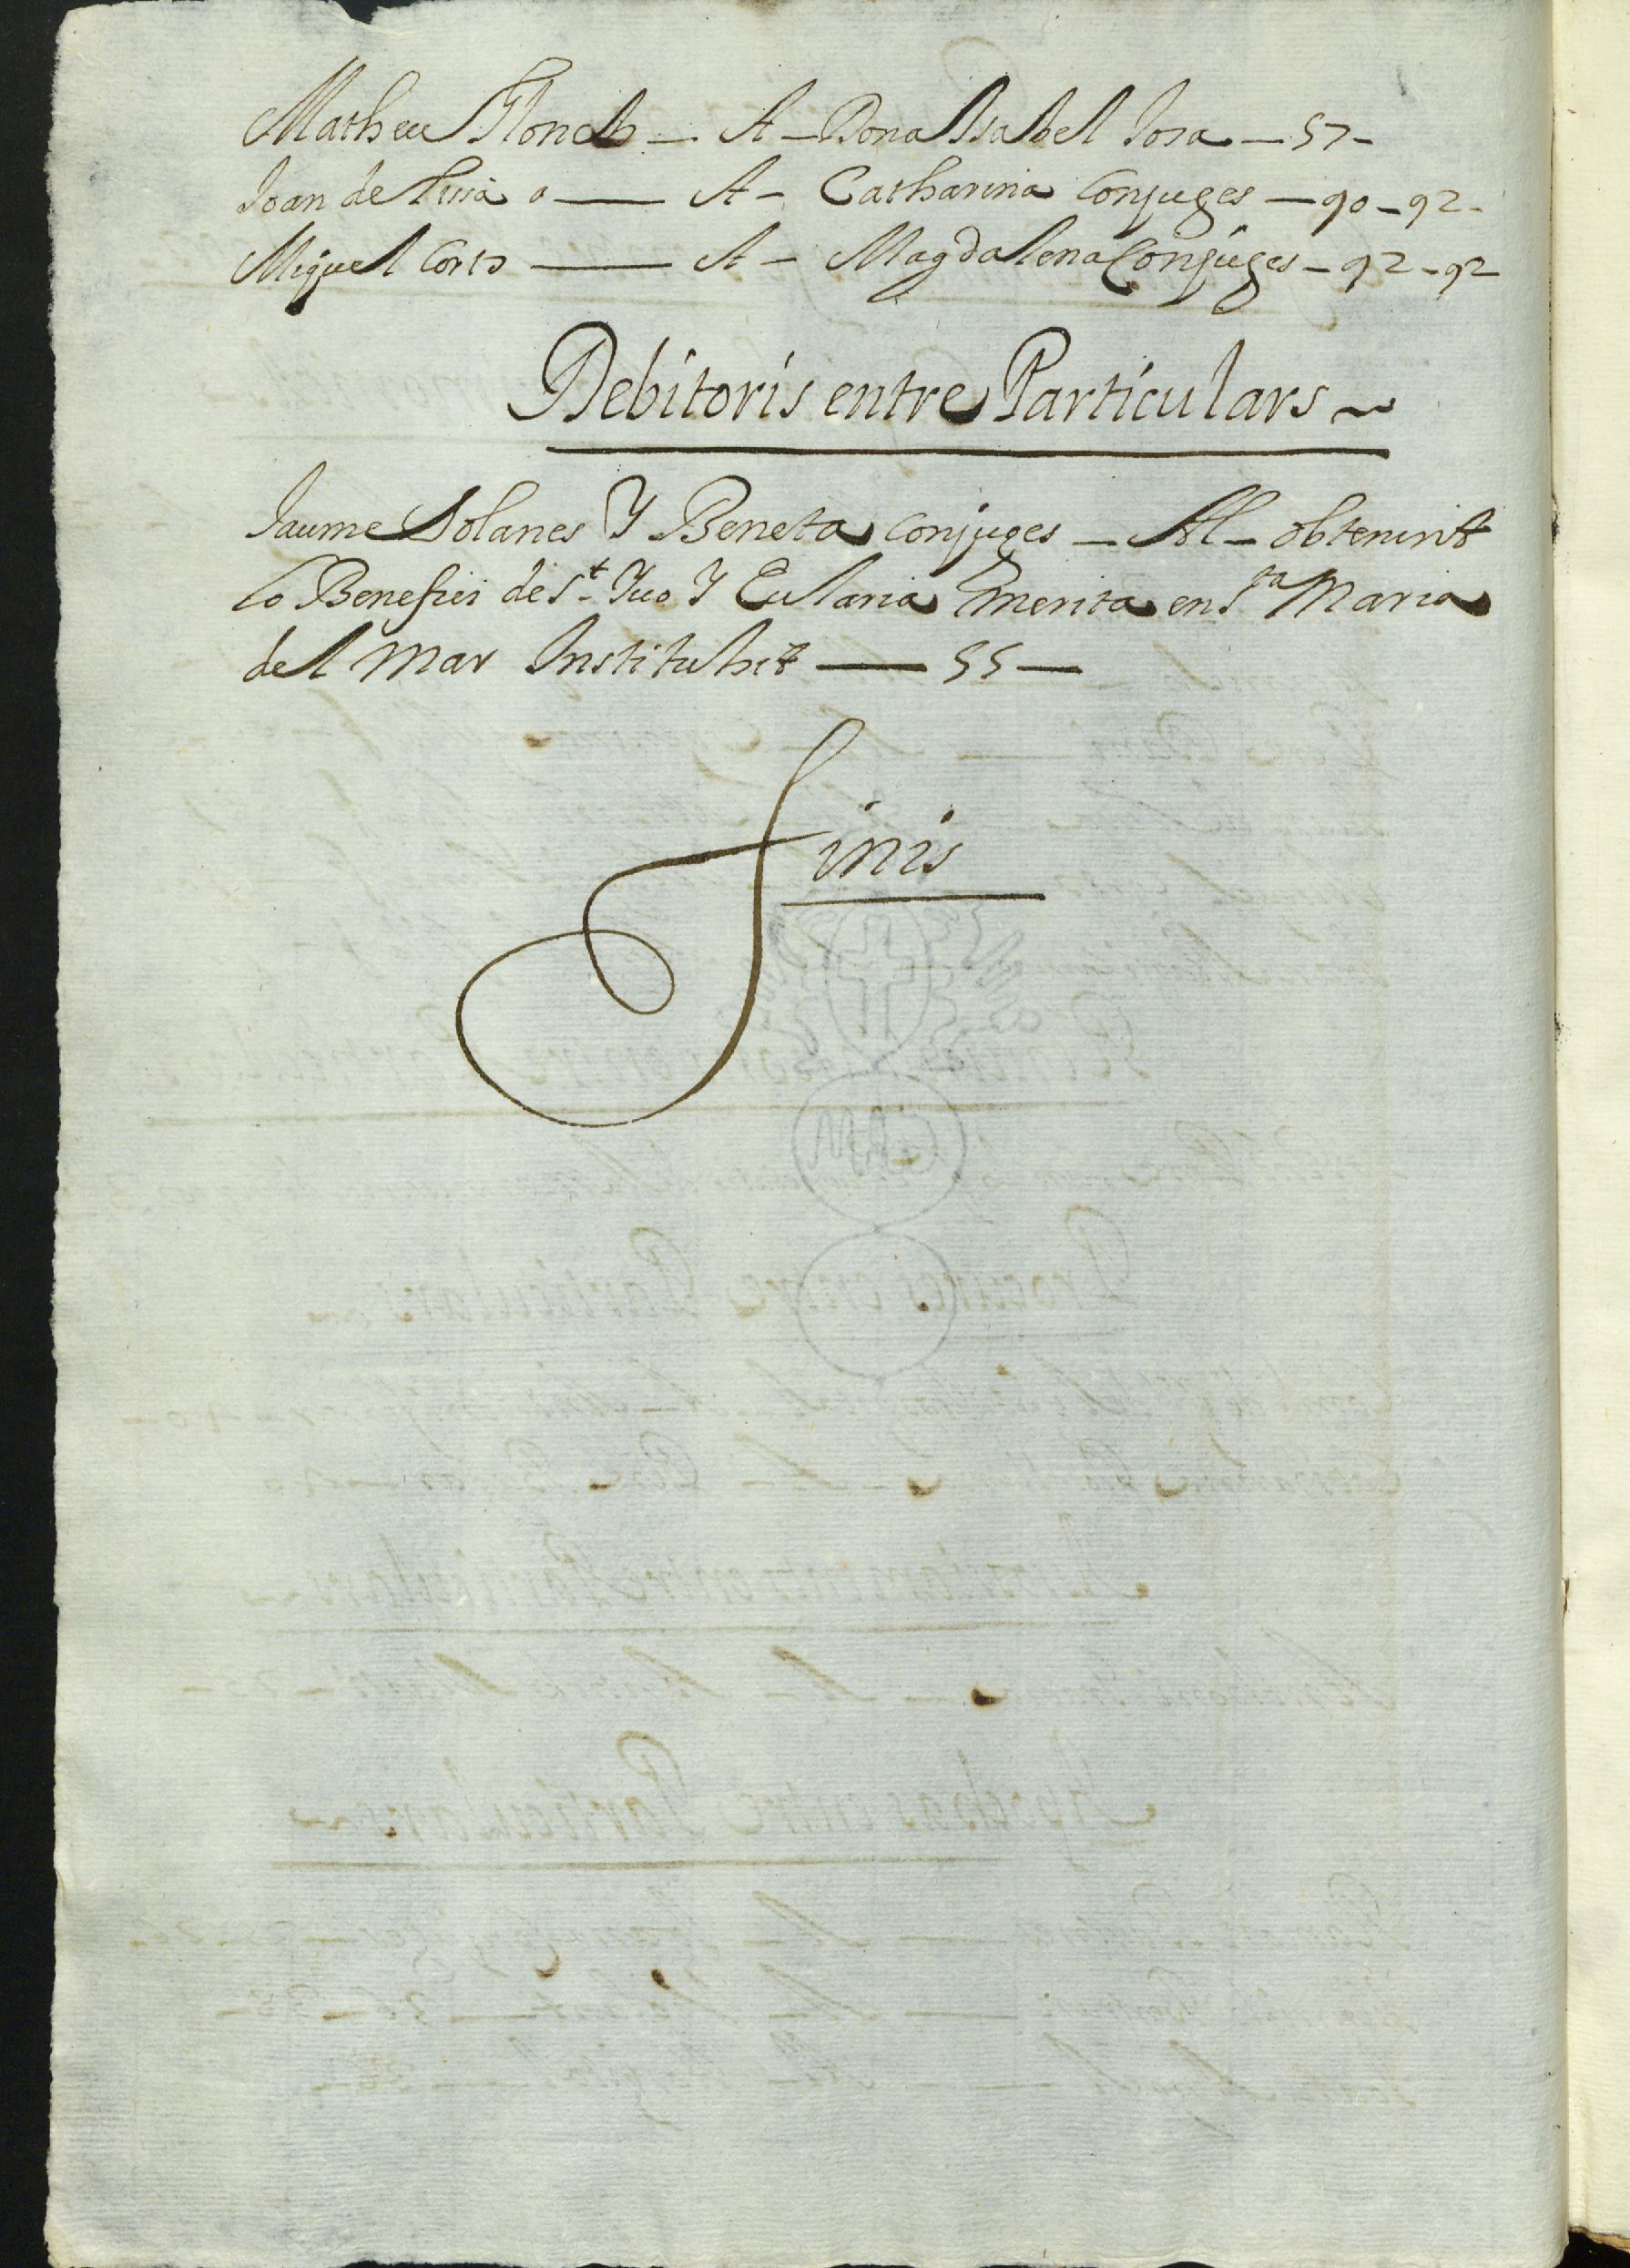 Matheu Flonch — A — Dona Issabel Josa — 57 —
Joan de — A — Catharina Conjuges — 90 — 92 —
Miguel Corts — A — Magdalena Conjuges — 92 — 92
Debitoris entre Particulars ~
Jaume Solanes Y Beneta Conjuges — Al — obtenint
lo Benefici de St. Yuo Y Eularia Emerita en Sta Maria
del Mar Instituhit — 55 —
Finis